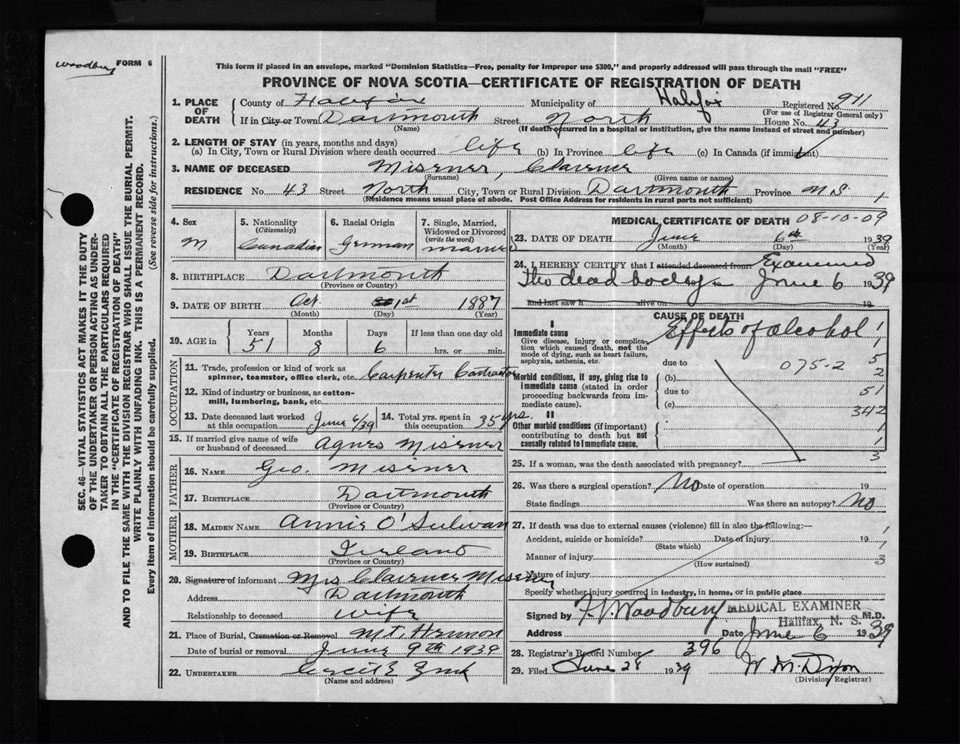 Woodbury
FORM 6
This form if placed in an envelope, marked "Dominion Statistics—Free, penalty for improper use $300," and properly addressed will pass through the mail "FREE"
PROVINCE OF NOVA SCOTIA—CERTIFICATE OF REGISTRATION OF DEATH
1. PLACE OF DEATH
County of Halifax Municipality of Halifax Registered No. 911
(For use of Registrar General only)
If in City or Town Dartmouth Street North House No. 43
(Name) (If death occurred in a hospital or institution, give the name instead of street and number)
2. LENGTH OF STAY (in years, months and days)
(a) In City, Town or Rural Division where death occurred life (b) In Province life (c) In Canada (if immigrant)
3. NAME OF DECEASED Misener, Clairner
(Surname) (Given name or names)
RESIDENCE No. 43 Street North City, Town or Rural Division Dartmouth Province N S 1
(Residence means usual place of abode. Post Office Address for residents in rural parts not sufficient)
4. Sex
M
5. Nationality
(Citizenship)
Canadian
6. Racial Origin
German
7. Single, Married,
Widowed or Divorced
(write the word)
married
8. BIRTHPLACE Dartmouth
(Province or Country)
9. DATE OF BIRTH Oct 1st 1887
(Month) (Day) (Year)
10. AGE in
Years Months Days If less than one day old
51 8 6 hrs. or min.
OCCUPATION
11. Trade, profession or kind of work as
spinner, teamster, office clerk, etc. Carpenter Contractor
12. Kind of industry or business, as cotton-
mill, lumbering, bank, etc.
13. Date deceased last worked
at this occupation June 6/39
14. Total yrs. spent in
this occupation 35 yrs.
15. If married give name of wife
or husband of deceased Agnes Misener
FATHER
16. NAME Geo. Misener
17. BIRTHPLACE Dartmouth
(Province or Country)
MOTHER
18. MAIDEN NAME Annie O'Sulivan
19. BIRTHPLACE Ireland
(Province or Country)
20. Signature of informant Mrs Clairner Misener
Address Dartmouth
Relationship to deceased wife
21. Place of Burial, Cremation or Removal Mt. Hermon
Date of burial or removal June 9th 1939
22. UNDERTAKER
(Name and address)
MEDICAL CERTIFICATE OF DEATH 08-10-09
23. DATE OF DEATH June 6th 1939
(Month) (Day) (Year)
24. I HEREBY CERTIFY that I attended deceased from Examined
the dead body June 6 1939
and last saw h alive on 19
CAUSE OF DEATH
I
Immediate cause Effects of alcohol 1
Give disease, injury or complica-
tion which caused death, not the
mode of dying, such as heart failure,
asphyxia, asthenia, etc.
1
due to 075-2 5
Morbid conditions, if any, giving rise to
immediate cause (stated in order
proceeding backwards from im-
mediate cause).
(b) 2
due to 51
(c) 342
II
Other morbid conditions (important)
contributing to death but not
causally related to immediate cause.
1
1
3
25. If a woman, was the death associated with pregnancy?
26. Was there a surgical operation? No Date of operation 19
State findings Was there an autopsy? No
27. If death was due to external causes (violence) fill in also the following:—
Accident, suicide or homicide? Date of injury 19 1
(State which)
1
Manner of injury 3
(How sustained)
Nature of injury
Specify whether injury occurred in industry, in home, or in public place
Signed by F. V. Woodbury MEDICAL EXAMINER M.D.
Halifax, N. S.
Address Date June 6 1939
28. Registrar's Record Number 396
29. Filed June 28 1939 W. M. Dixon
(Division Registrar)
SEC. 46—VITAL STATISTICS ACT MAKES IT THE DUTY
OF THE UNDERTAKER OR PERSON ACTING AS UNDER-
TAKER TO OBTAIN ALL THE PARTICULARS REQUIRED
IN THE "CERTIFICATE OF REGISTRATION OF DEATH"
AND TO FILE THE SAME WITH THE DIVISION REGISTRAR WHO SHALL ISSUE THE BURIAL PERMIT.
WRITE PLAINLY WITH UNFADING INK. THIS IS A PERMANENT RECORD.
Every item of information should be carefully supplied. (See reverse side for instructions.)